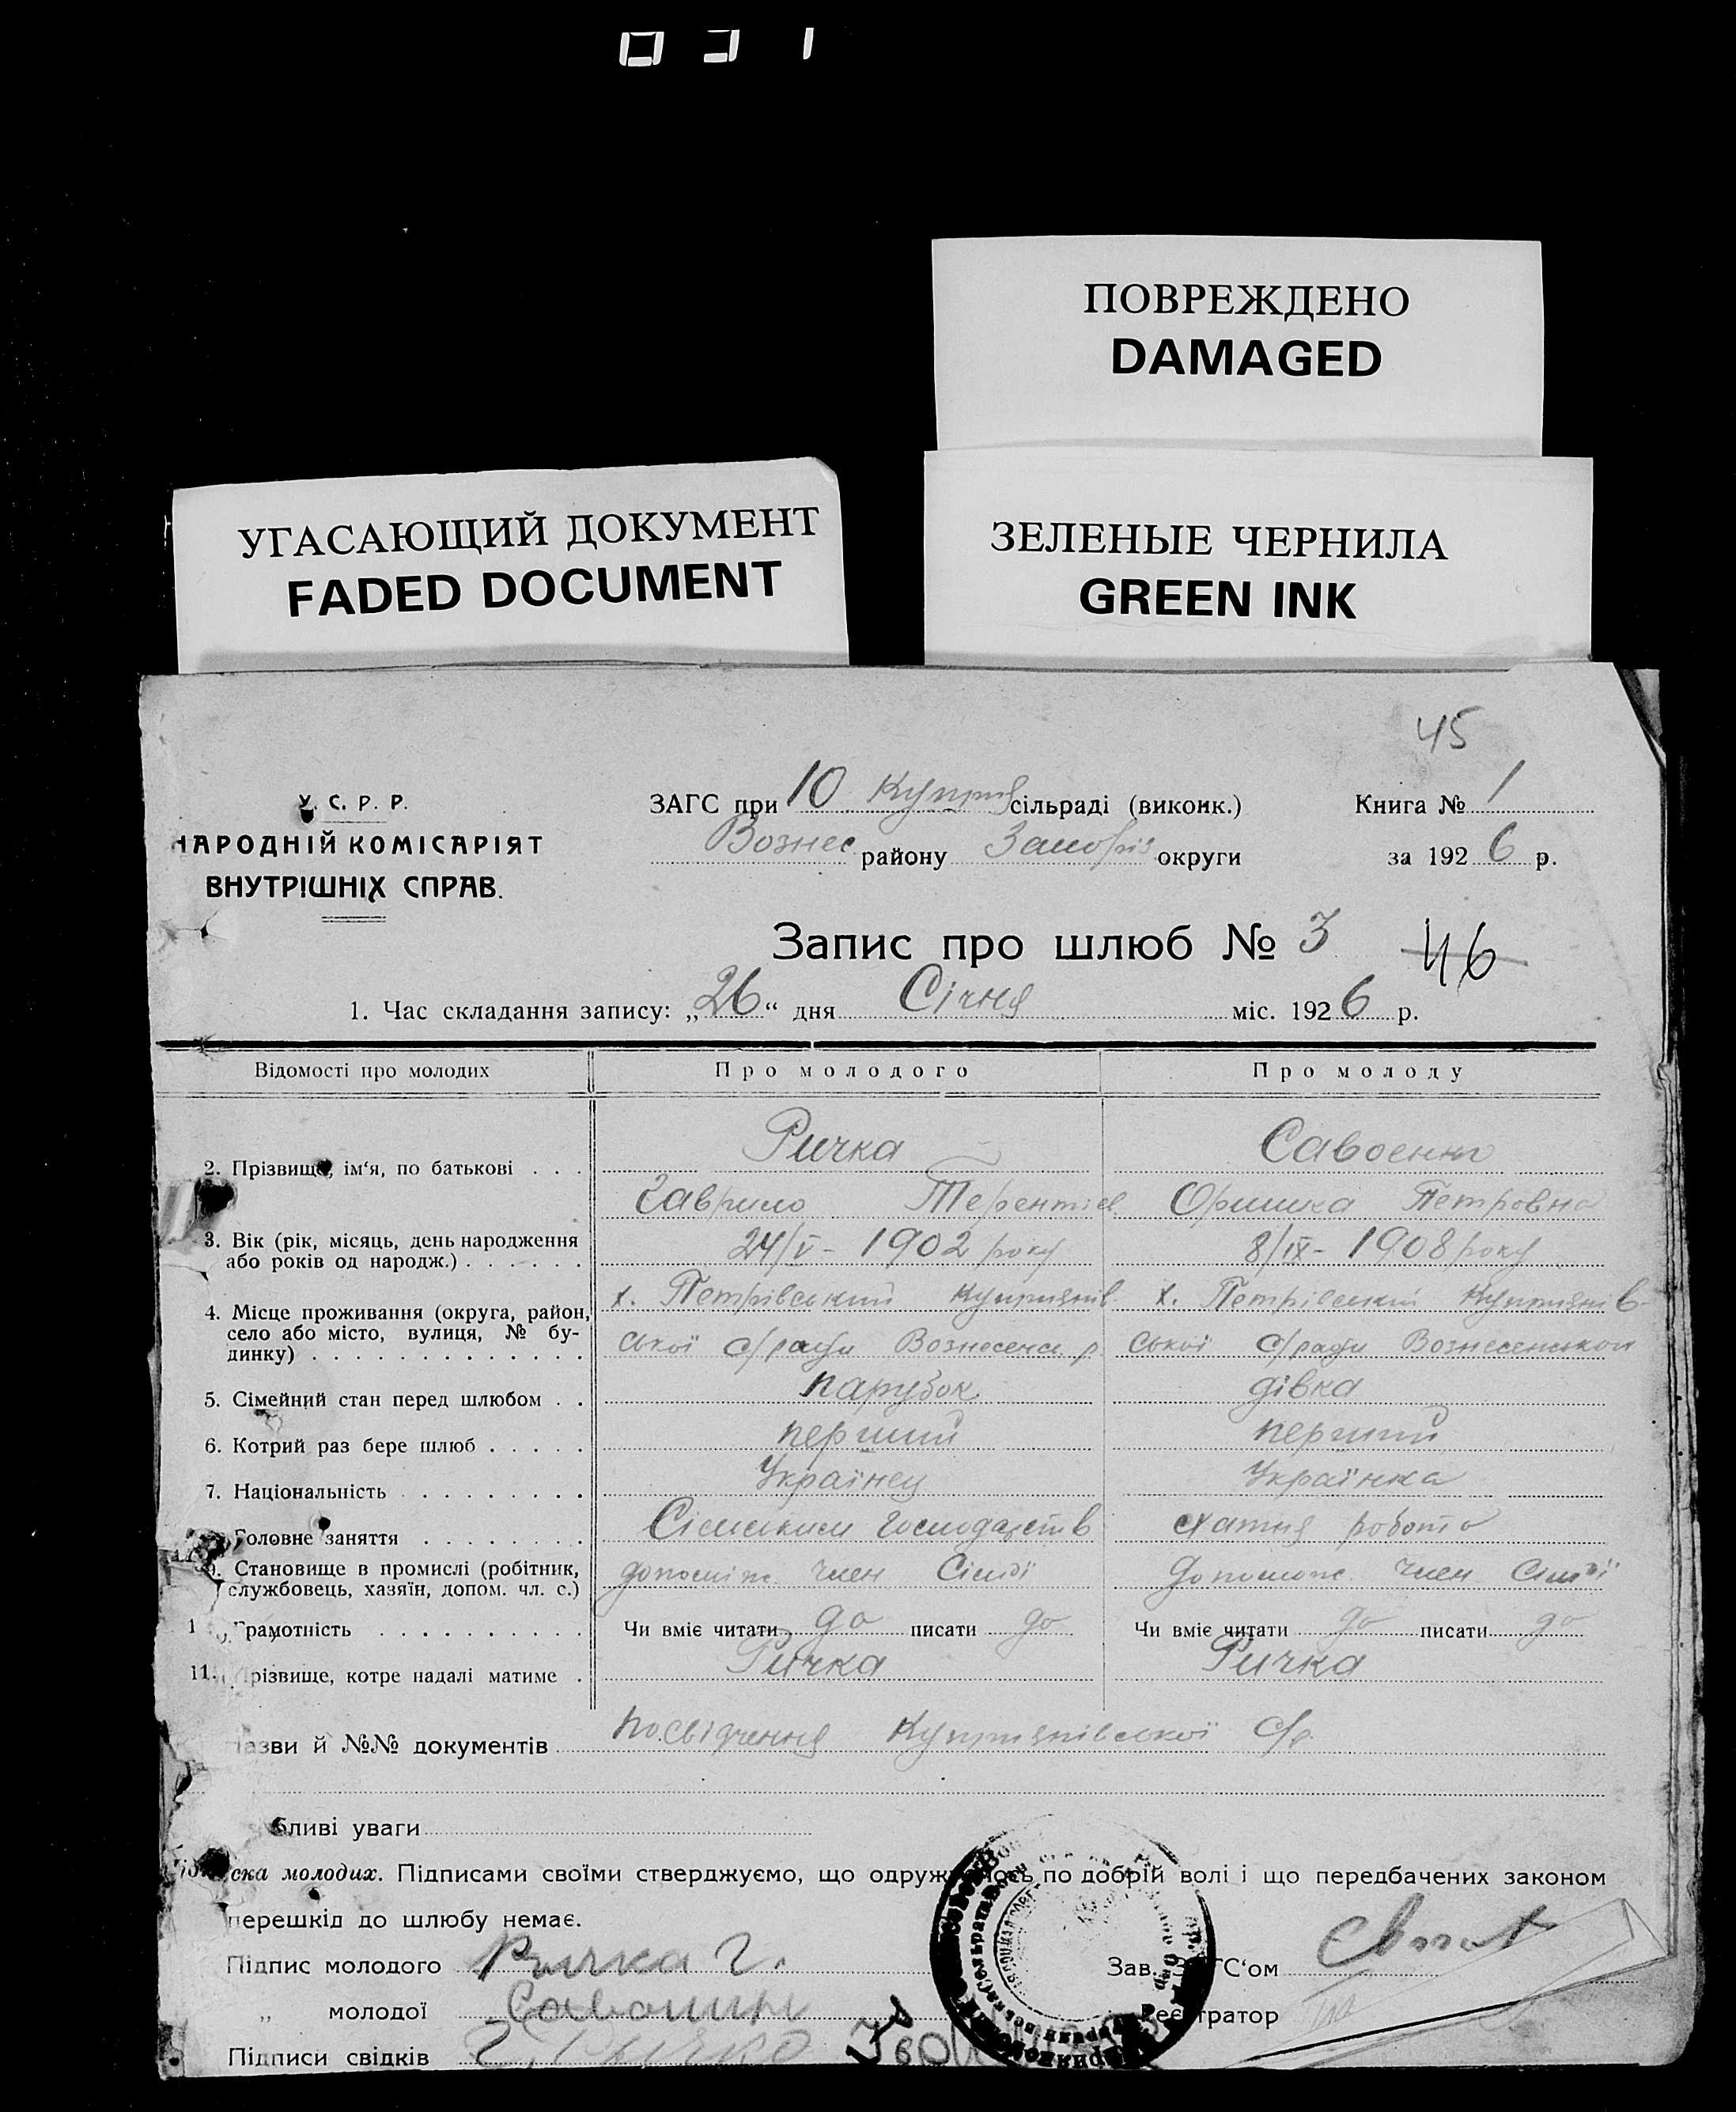 031
ПОВРЕЖДЕНО
DAMAGED
УГАСАЮЩИЙ ДОКУМЕНТ
FADED DOCUMENT
ЗЕЛЕНЫЕ ЧЕРНИЛА
GREEN INK
45
У. С. Р. Р.
НАРОДНІЙ КОМІСАРІЯТ
ВНУТРІШНІХ СПРАВ.
ЗАГС при 10 Куприя сільраді (виконк.)
Вознес району Запоріз округи
Книга № 1
за 1926 р.
Запис про шлюб № 3 46
1. Час складання запису: „26“ дня Січня міс. 1926 р.
Відомості про молодих Про молодого Про молоду
2. Прізвище, ім'я, по батькові . . . Ричка
Гаврило Терентієв Оришка Петровна
3. Вік (рік, місяць, день народження або років од народж.) . . . . . . 24/V - 1902 року 8/IX - 1908 року
4. Місце проживання (округа, район, село або місто, вулиця, № будинку) . . . . . . . . . . . . . х. Петрівський Куприянів х. Петрівський Куприянів-
ської с/ради Вознесенс р ської с/ради Вознесенської
5. Сімейний стан перед шлюбом . . парубок дівка
6. Котрий раз бере шлюб . . . . . перший перший
7. Національність . . . . . . . . . Українец Українка
Головне заняття . . . . . . . . господарств хатня робота
9. Становище в промислі (робітник, службовець, хазяїн, допом. чл. с.) член Сімї член Сімї
Грамотність . . . . . . . . . . Чи вміє читати до писати до Чи вміє читати до писати до
11. Прізвище, котре надалі матиме . Ричка Ричка
Назви й №№ документів посвідчення Куприянівської С/р.
бливі уваги
ска молодих. Підписами своїми стверджуємо, що одружуємось по добрій волі і що передбачених законом
перешкід до шлюбу немає.
Підпис молодого Ричка Г. Зав. ЗАГС'ом
„ молодої Реєстратор
Підписи свідків